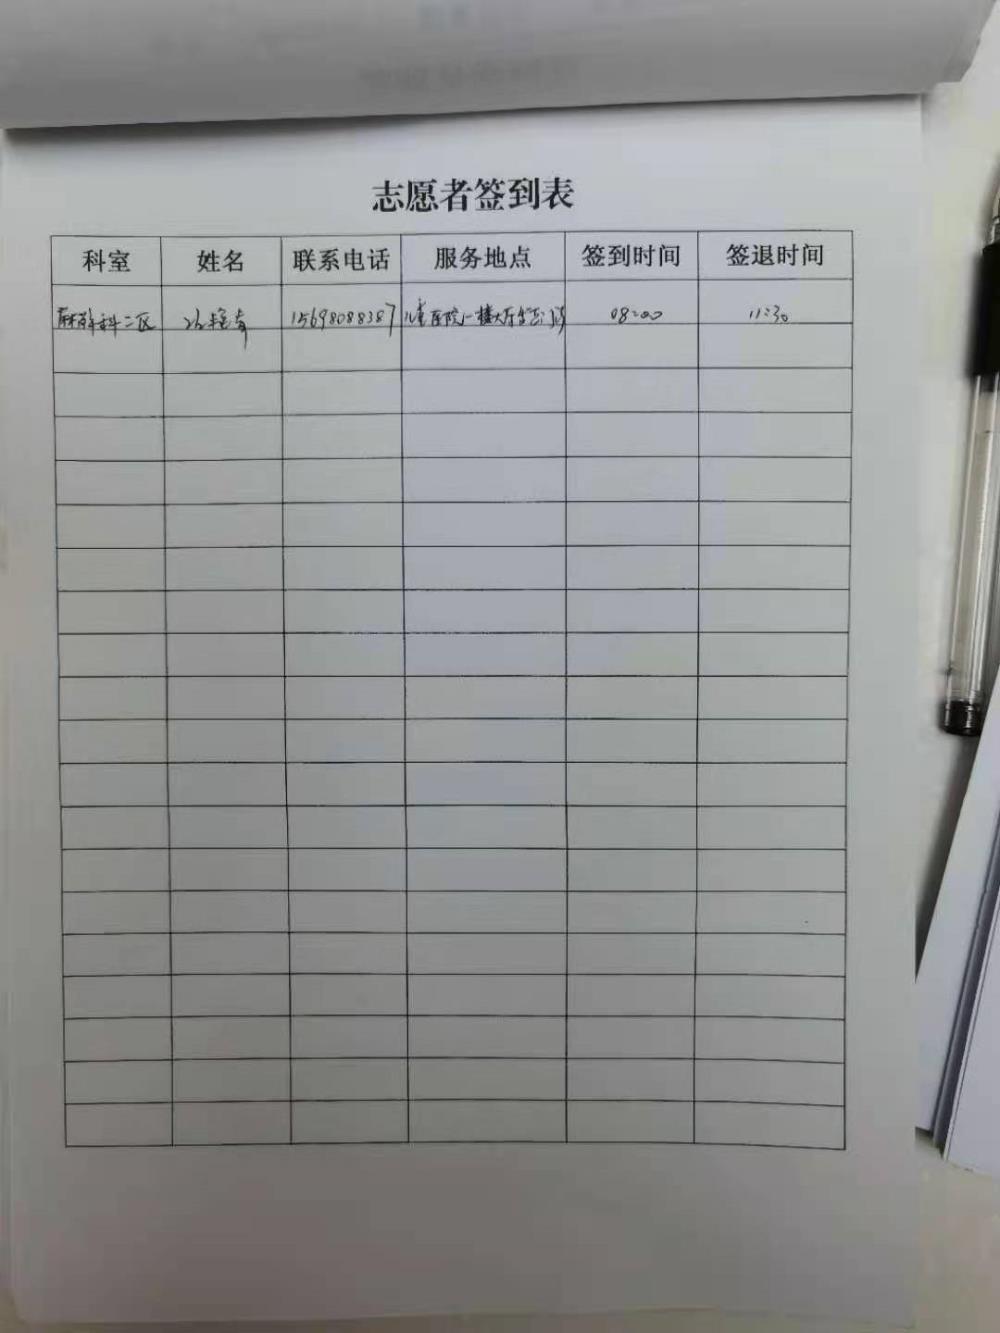 志愿者签到表
科室 姓名 联系电话 服务地点 签到时间 签退时间
麻醉科二区 15698088387 儿童医院一楼大厅 08:00 11:30